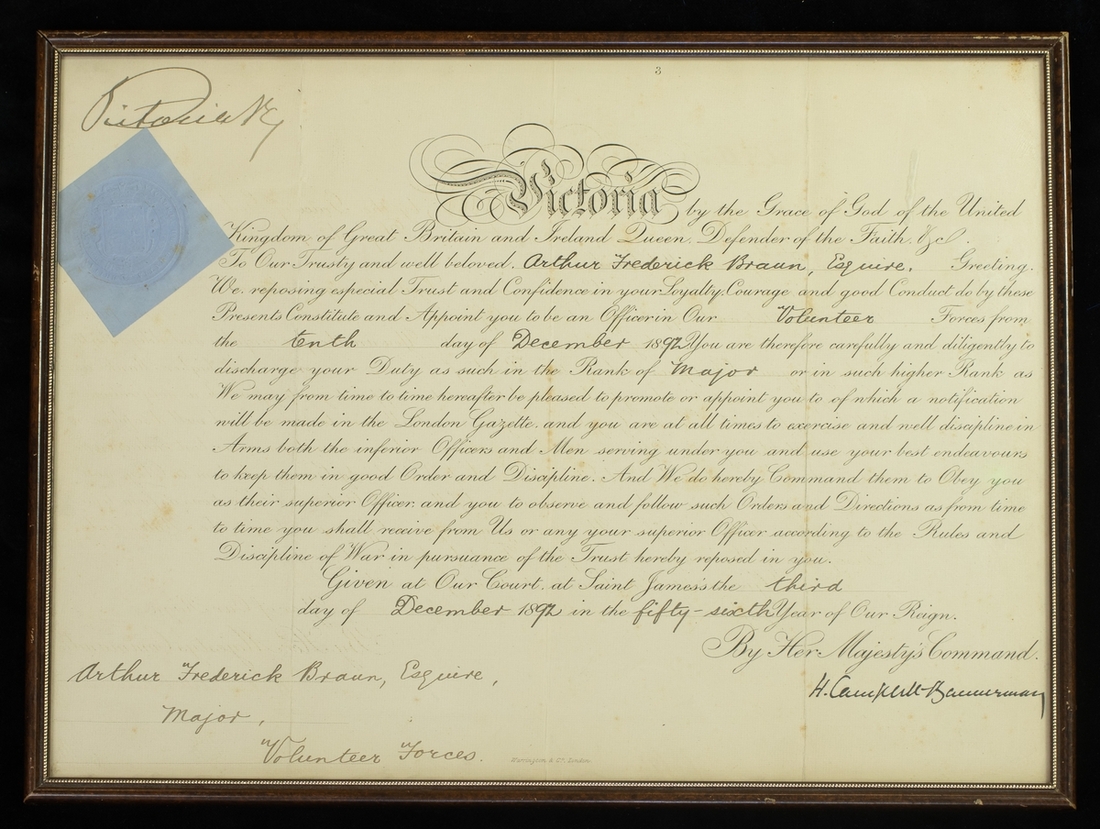 3
Victoria R I
Victoria by the Grace of God of the United
Kingdom of Great Britain and Ireland Queen. Defender of the Faith. &c.
To Our Trusty and well beloved. Arthur Frederick Braun, Esquire. Greeting.
We, reposing especial Trust and Confidence in your Loyalty, Courage and good Conduct do by these
Presents Constitute and Appoint you to be an Officer in Our Volunteer Forces from
the tenth day of December 1892 You are therefore carefully and diligently to
discharge your Duty as such in the Rank of Major or in such higher Rank as
We may from time to time hereafter be pleased to promote or appoint you to of which a notification
will be made in the London Gazette. and you are at all times to exercise and well discipline in
Arms both the inferior Officers and Men serving under you and use your best endeavours
to keep them in good Order and Discipline. And We do hereby Command them to Obey you
as their superior Officer. and you to observe and follow such Orders and Directions as from time
to time you shall receive from Us or any your superior Officer according to the Rules and
Discipline of War in pursuance of the Trust hereby reposed in you.
Given at Our Court. at Saint James's the third
day of December 1892 in the fifty-sixth Year of Our Reign.
By Her Majesty's Command.
H. Campbell-Bannerman
Arthur Frederick Braun, Esquire,
Major,
Volunteer Forces.